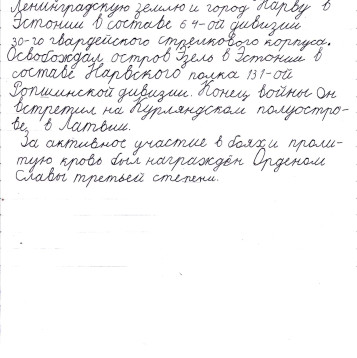 Ленинградскую землю и город Нарву в
Эстонии в составе 64-ой дивизии
30-го гвардейского стрелкового корпуса.
Освобождал остров Эзель в Эстонии в
составе Нарвского полка 131-ой
Ропшинской дивизии. Конец войны Он
встретил на Курляндском полуостро-
ве, в Латвии.
За активное участие в боях и проли-
тую кровь был награждён Орденом
Славы третьей степени.